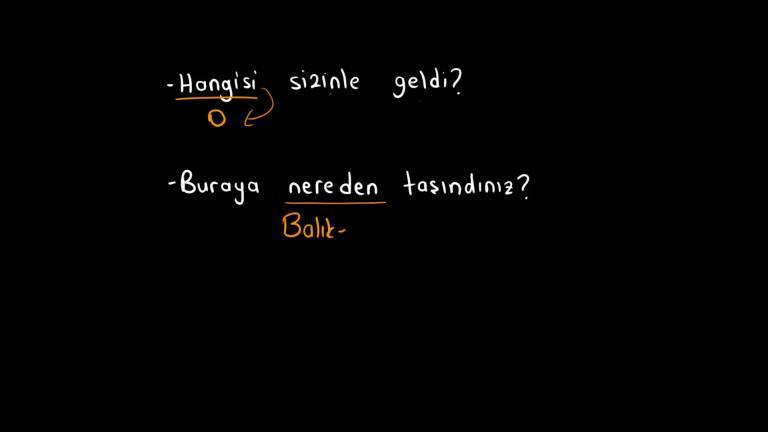 -Hangisi sizinle geldi?
O
-Buraya nereden taşındınız?
Balık-